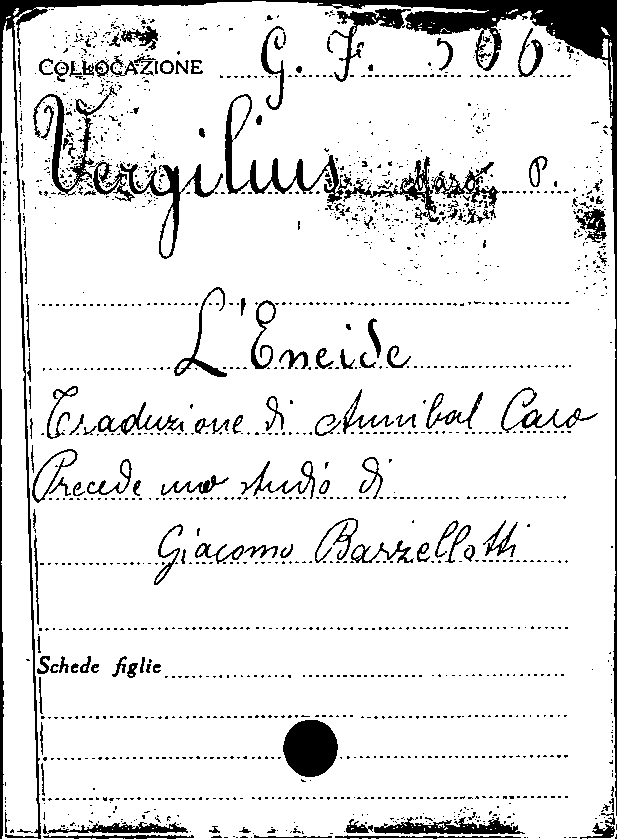 COLLOCAZIONE G. F. 506
Vergilius Maro, P.
L'Eneide
Traduzione di Annibal Caro
Precede uno studio di
Giacomo Barzellotti
Schede figlie